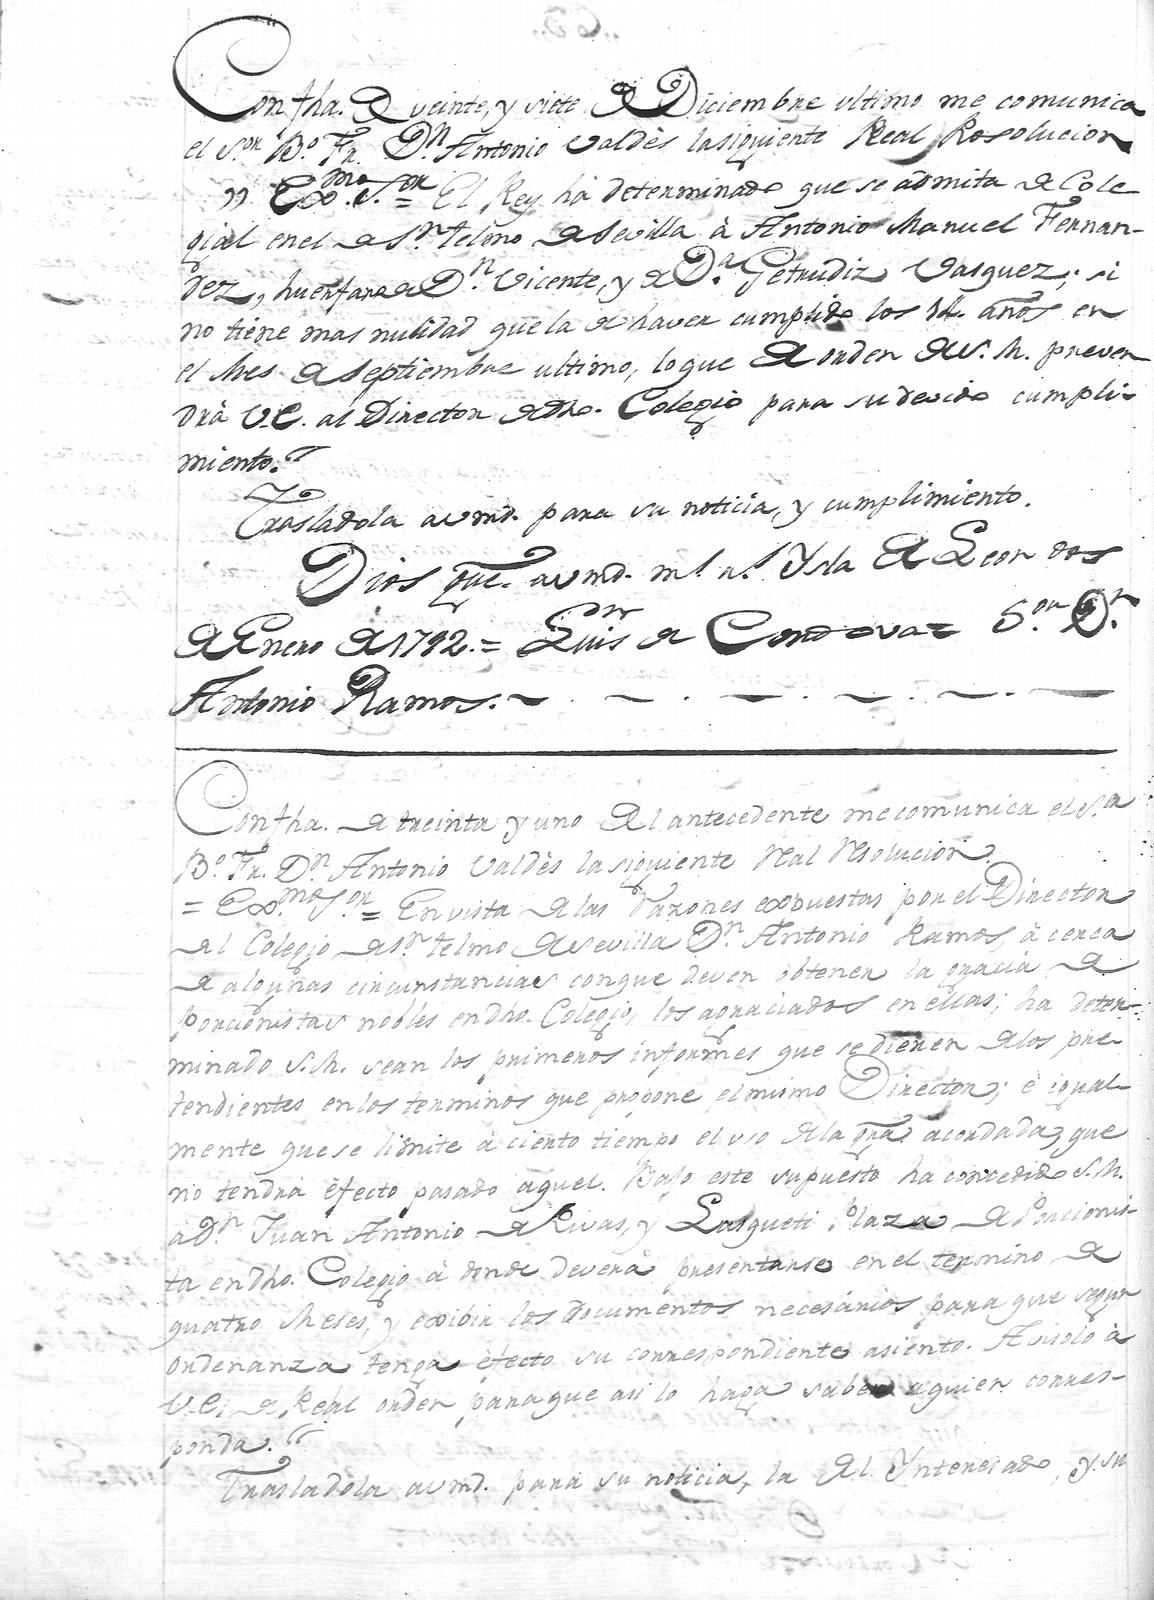 Con fha. de veinte, y siete de Diciembre ultimo me comunica
el S.or B.o Fr. D.n Antonio Valdès la siguiente Real Resolucion
" Exmo. S.or = El Rey hà determinado que se àdmita de Cole-
gial en el de S.n Telmo de Sevilla à Antonio Manuel Fernan-
dez, huerfano de D.n Vicente, y de D.a Getrudiz Vasquez; si
no tiene mas nulidad que la de haver cumplido los 14. años en
el Mes de Septiembre ultimo, lo que de orden de S. M. preven
drà V.E. al Director de dho. Colegio para su devido cumpli-
miento."
Trasladola a vmd. para su noticia, y cumplimiento.
Dios gue. a vmd. m.s a.s Ysla de Leon dos
de Enero de 1792. = Luis de Cordova = S.or D.n
Antonio Ramos.
Con fha. de treinta y uno del antecedente me comunica el S.or
B.o Fr. D.n Antonio Valdès la siguiente Real Resolucion.
= Ex.mo S.or = En vista de las razones expuestas por el Director
del Colegio de S.n Telmo de Sevilla D.n Antonio Ramos, à cerca
de algunas circunstancias con que deven òbtener la gracia de
Porcionistas nobles en dho. Colegio, los agraciados en ellas; ha deter-
minado S. M. sean los primeros informes que se dieren de los pre-
tendientes en los terminos que propone el mismo Director; è igual-
mente que se limite à cierto tiempo el uso de la gra. acordada, y que
no tendrà èfecto pasado aquel. Bajo este supuesto ha concedido S. M.
a D.n Juan Antonio de Rivas, y Lasqueti Plaza de Porcionis-
ta en dho. Colegio à donde deverà presentarse en el termino de
quatro Meses, y exibir los documentos necesàrios para que segun
ordenanza tenga èfecto su correspondiente asiento. Avisolo à
V.E. de Real orden para que asi lo haga saber a quien corres-
ponda."
Trasladola a vmd. para su noticia, la del Ynteresado, y su